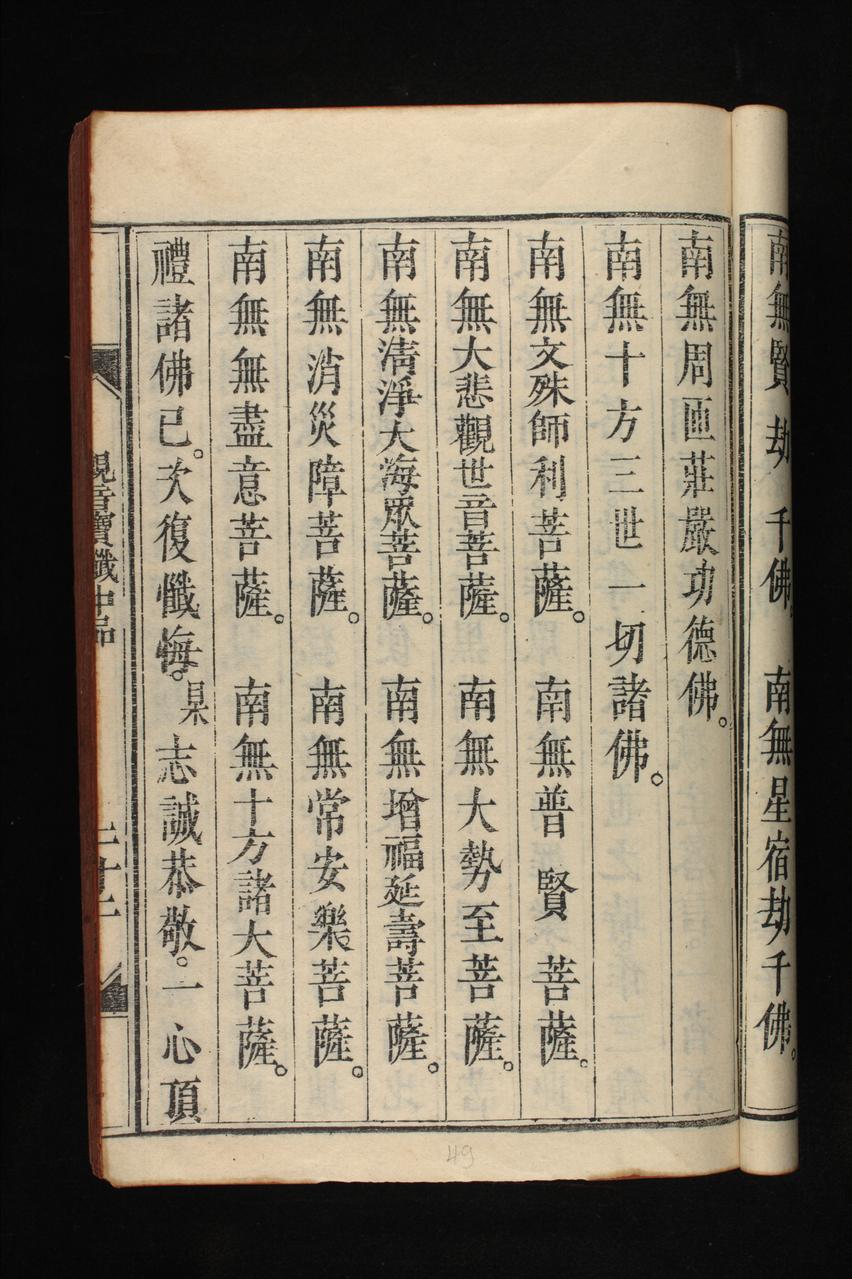 南無賢劫千佛。 南無星宿劫千佛。
南無周匝莊嚴功德佛。
南無十方三世一切諸佛。
南無文殊師利菩薩。 南無普賢菩薩。
南無大悲觀世音菩薩。 南無大勢至菩薩。
南無淸淨大海眾菩薩。 南無增福延壽菩薩。
南無消災障菩薩。 南無常安樂菩薩。
南無無盡意菩薩。 南無十方諸大菩薩。
禮諸佛已。次復懺悔。某甲志誠恭敬。一心頂
觀音寶懺中品
二十二
49